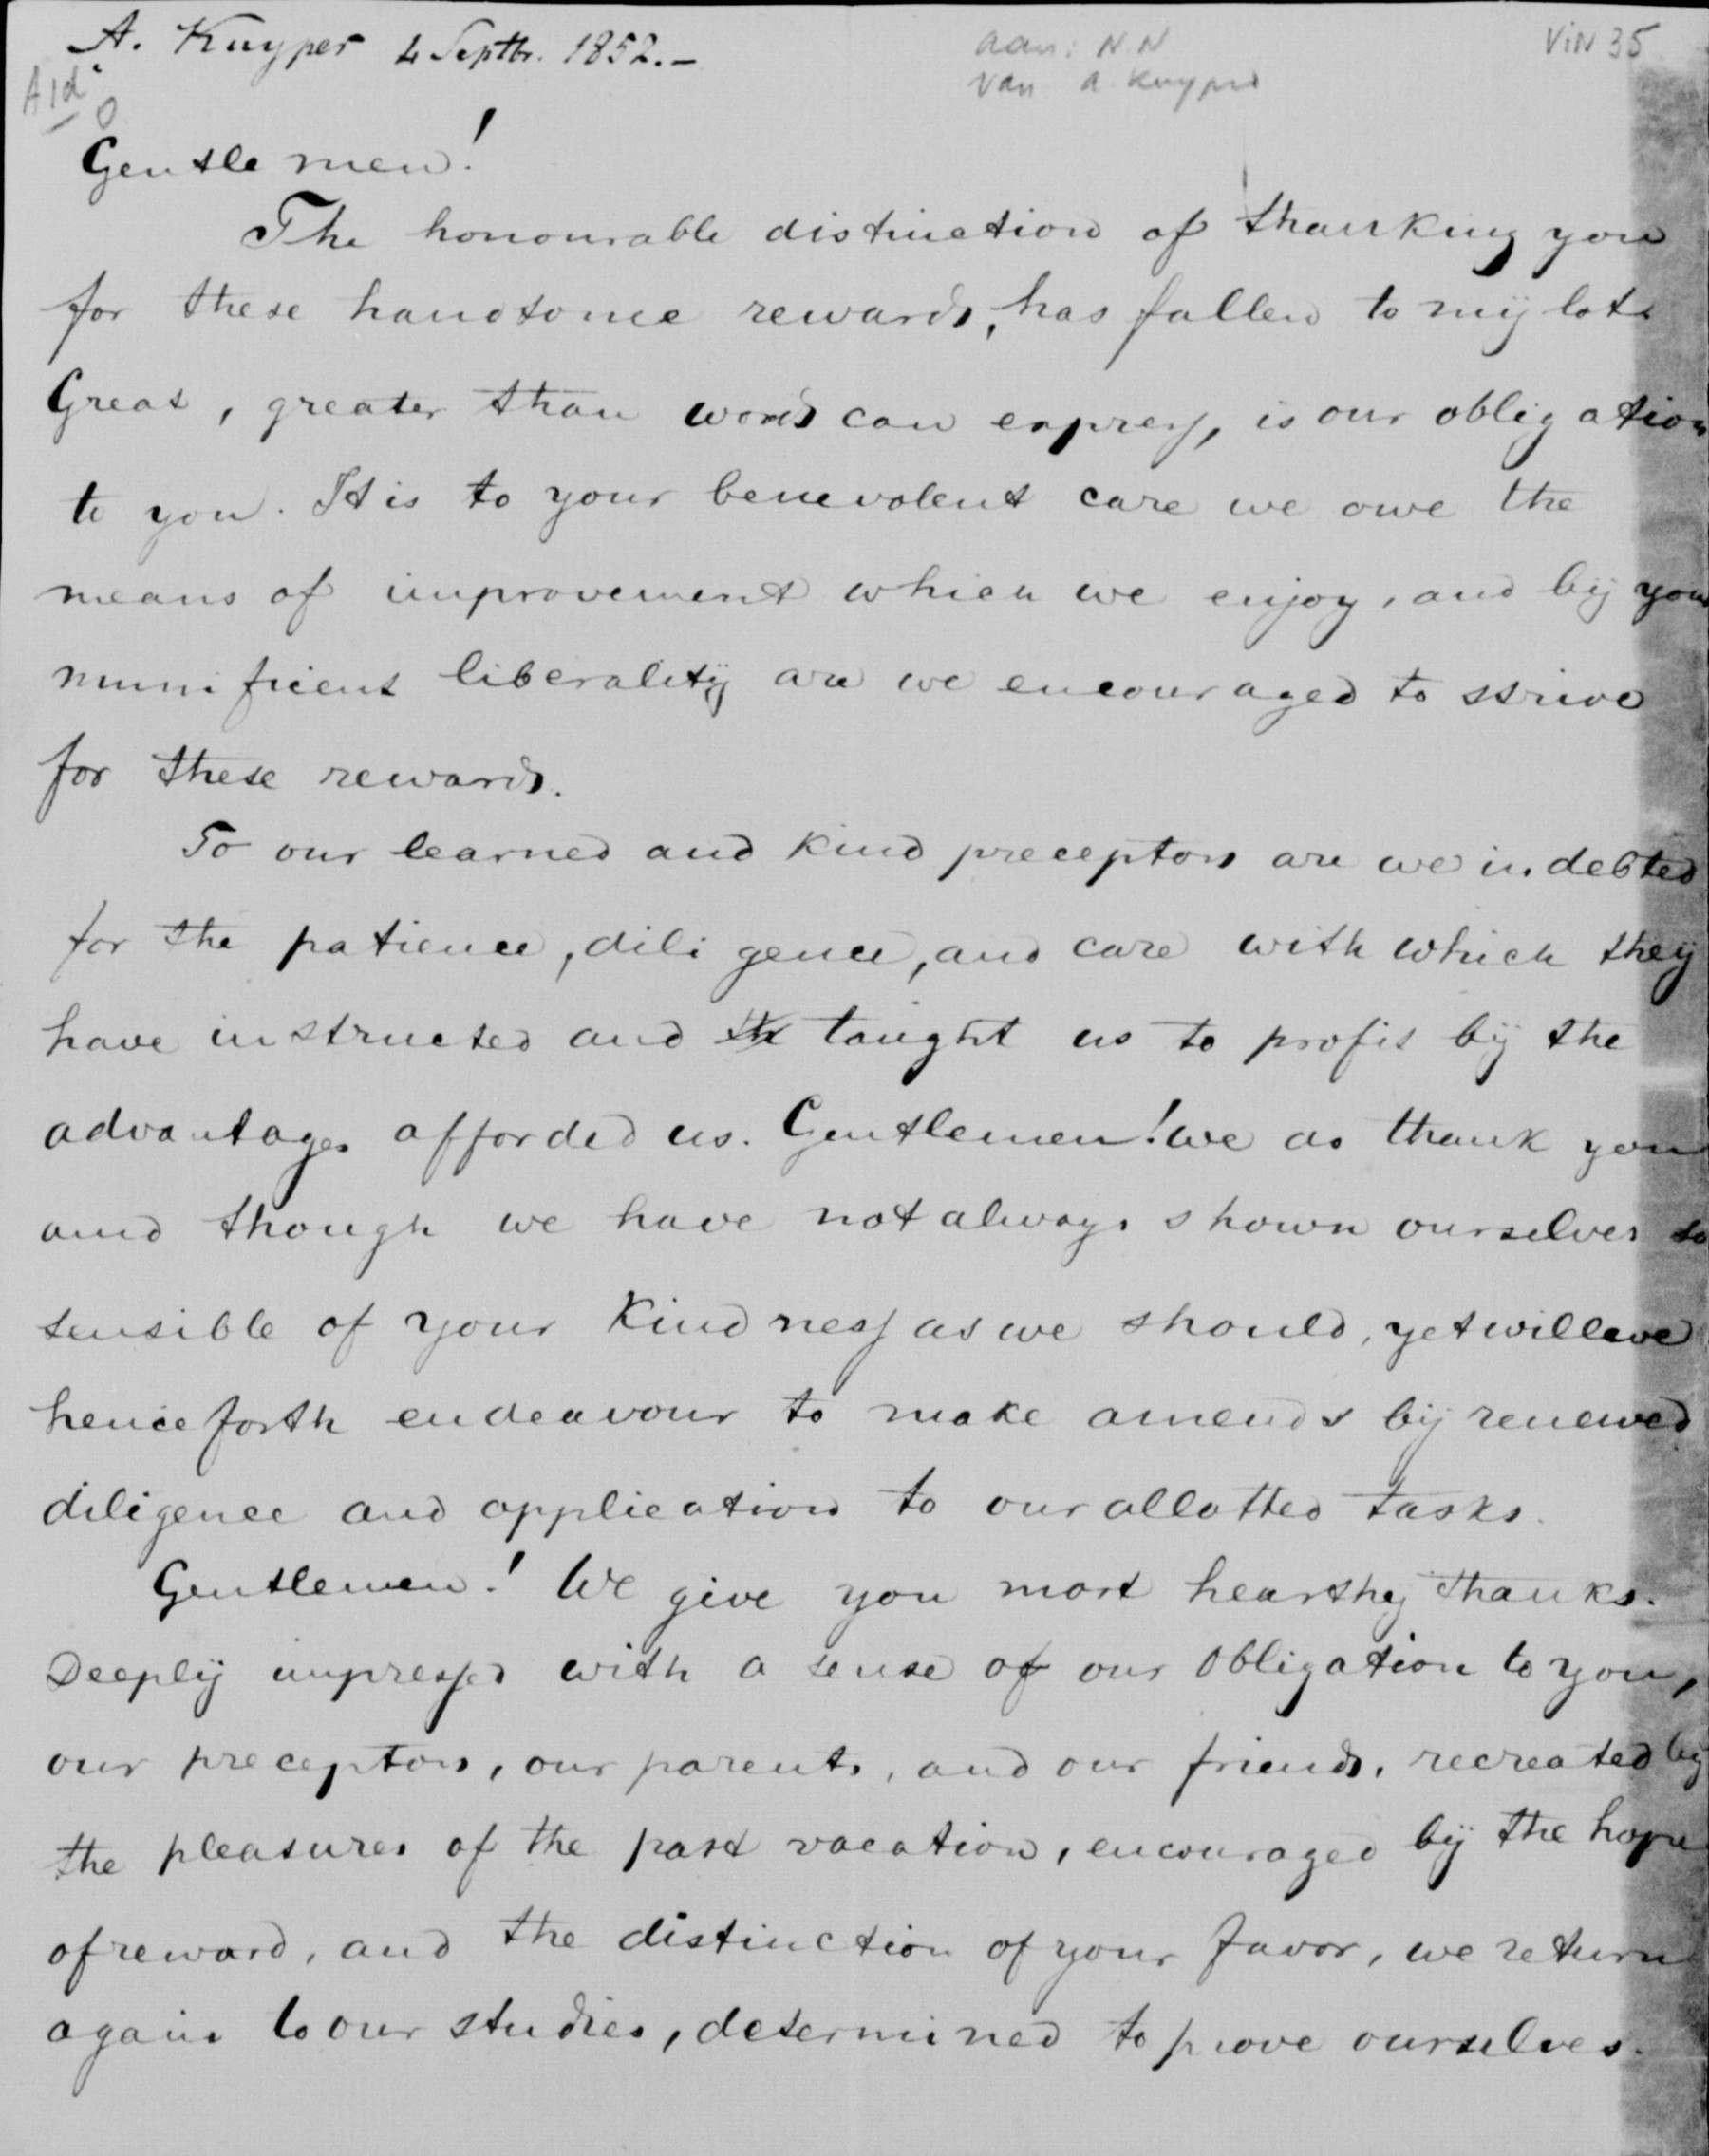 A. Kuyper 4 Septbr. 1852.-
aan: N.N
van A. Kuyper
VIN 35
A 1d
Gentlemen!
The honourable distinction of thanking you
for these handsome rewards, has fallen to my lot.
Great, greater than words can express, is our obligation
to you. It is to your benevolent care we owe the
means of improvement which we enjoy, and by your
munificent liberality are we encouraged to strive
for these rewards.
To our learned and kind preceptors are we indebted
for the patience, diligence, and care with which they
have instructed and taught us to profit by the
advantages afforded us. Gentlemen! we do thank you
and though we have not always shown ourselves so
sensible of your kindness as we should, yet will we
henceforth endeavour to make amends by renewed
diligence and application to our allotted tasks.
Gentlemen! We give you most hearthy thanks.
Deeply impressed with a sense of our obligation to you,
our preceptors, our parents, and our friends, recreated by
the pleasures of the past vacation, encouraged by the hope
of reward, and the distinction of your favor, we return
again to our studies, determined to prove ourselves.